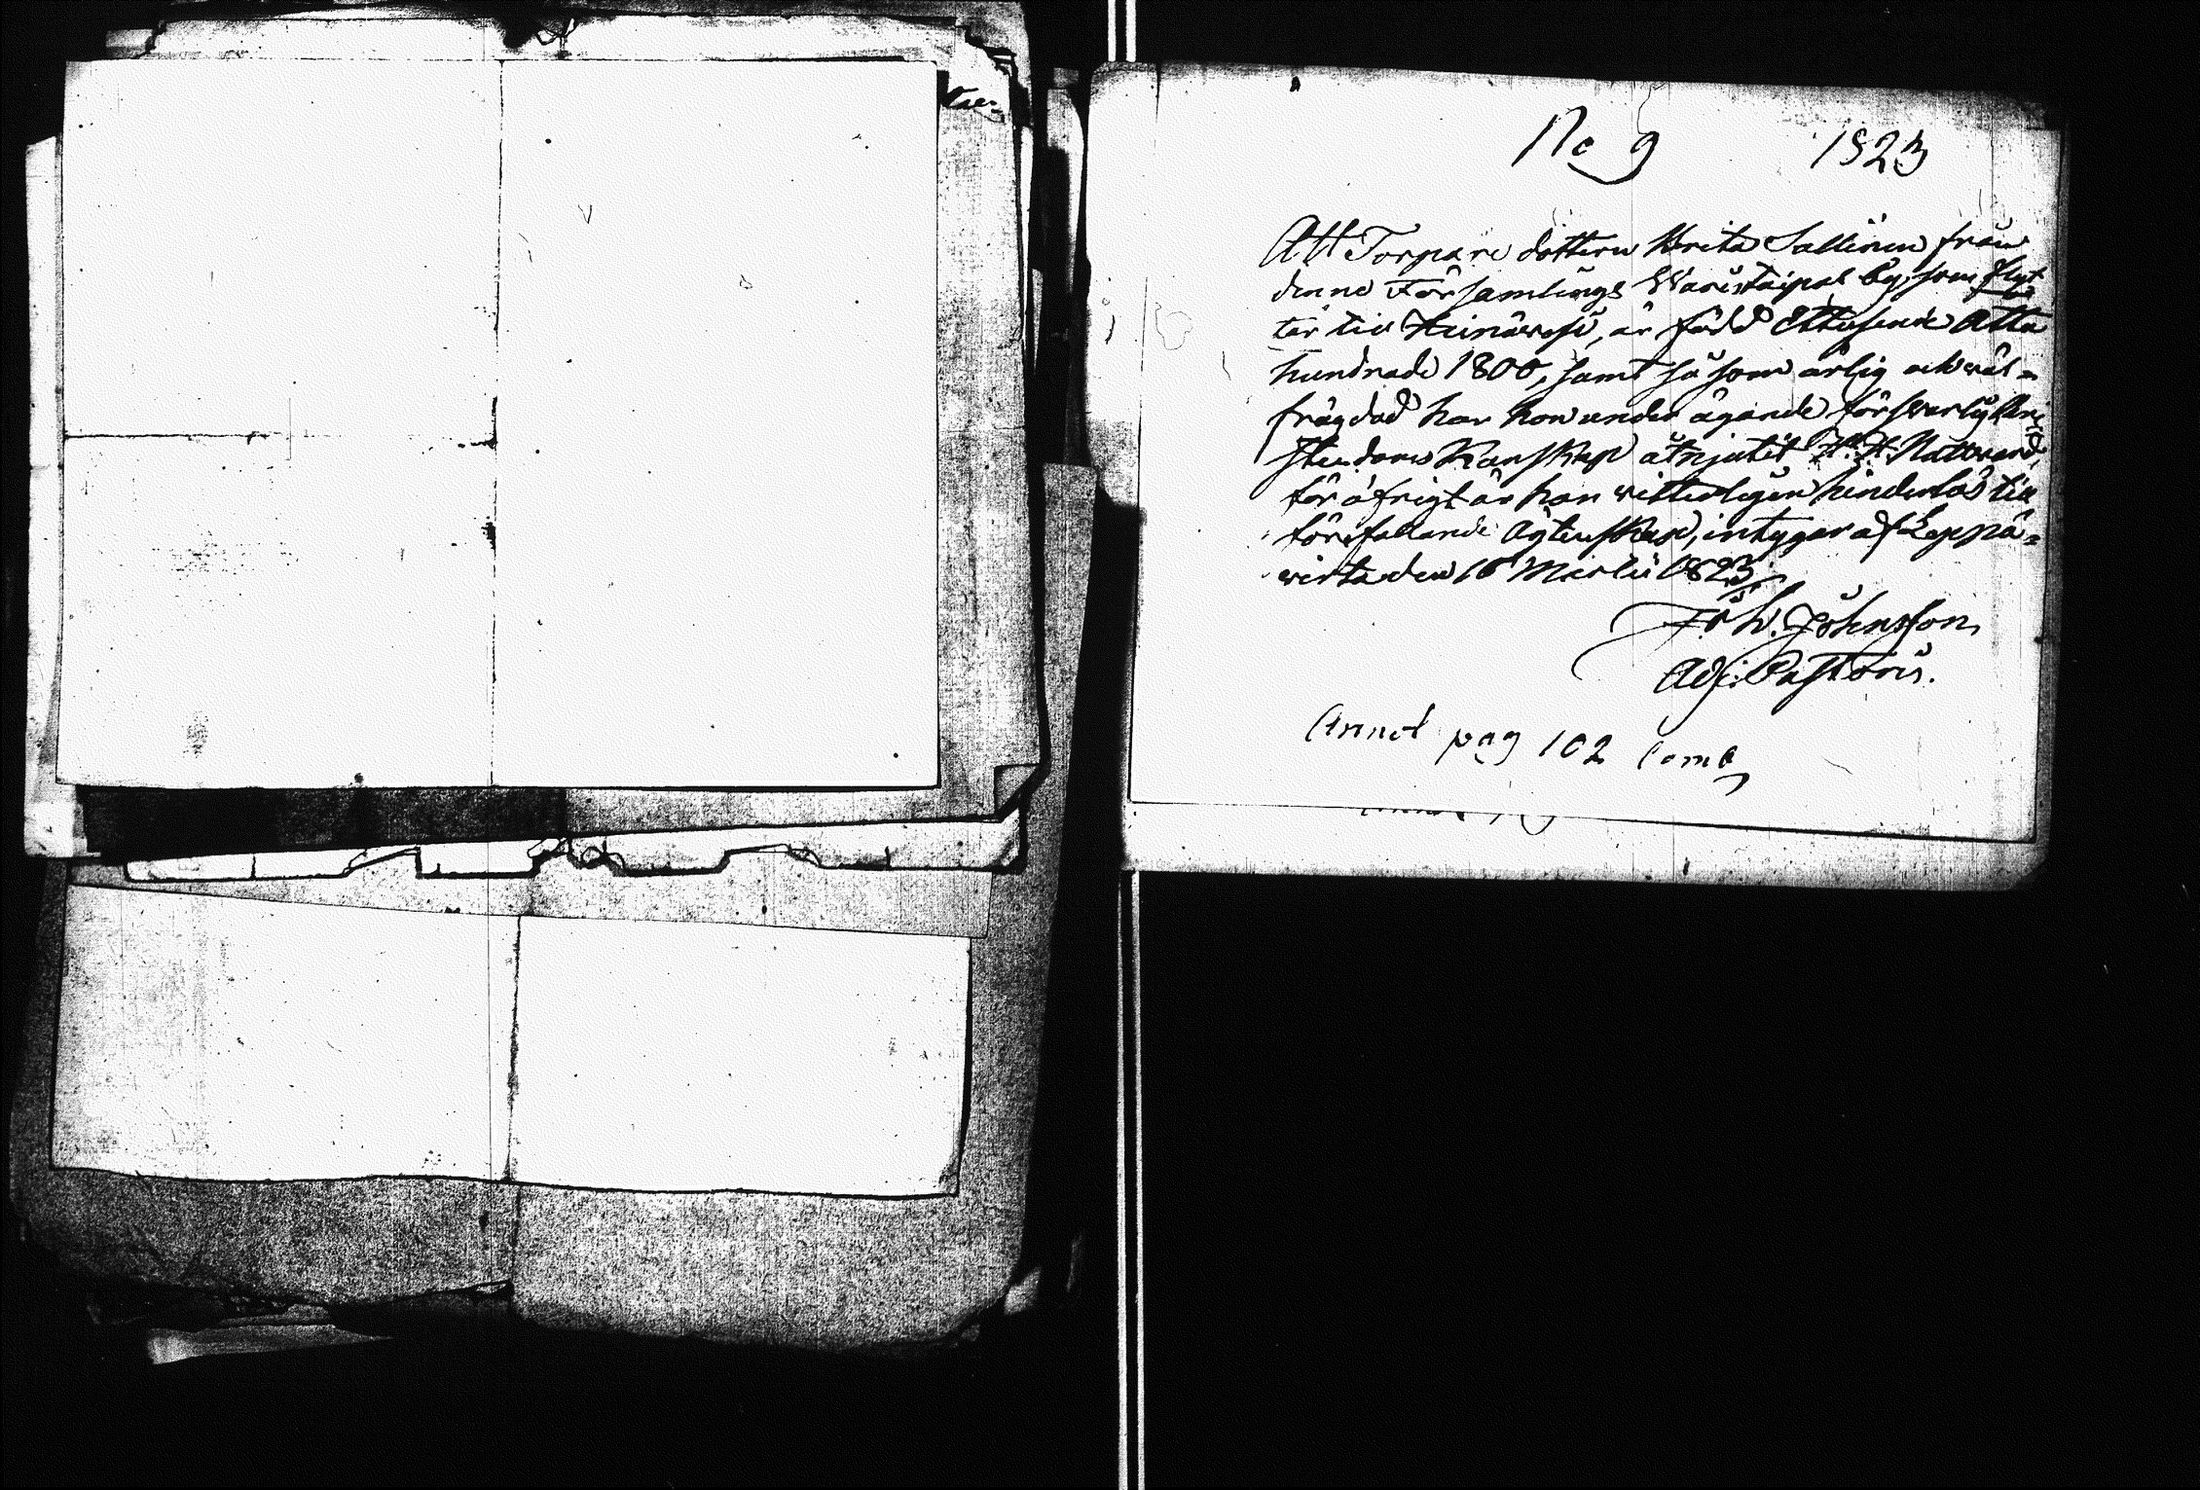 No 9 1823
Att Torpare dottern Brita Sallinen från
denne Församlings Waristaipal by, som flyt
ter till Heinäwesi, är född Ettusende Åtta
hundrade 1800, samt så som ärlig och wäl-
frägdad har hon under ägande förswarlig Kri
stendoms Kunskap åtnjutit H. H. Nattward,
för öfrigt är hon witterligen hinderlös till
förefallande Ägtenskap, intygar af Leppä-
wirta den 16 Martii 1823
Joh. Johnsson
Adj: Pastoris.
Annot pag 102 Comb